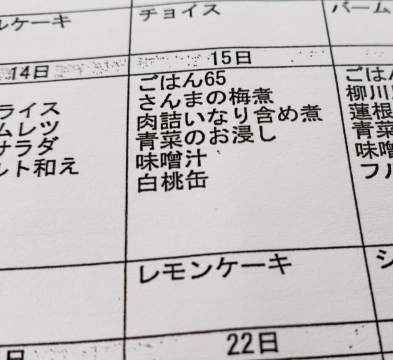 ルケーキ
チョイス
バーム
14日
15日
ライス
ムレツ
サラダ
ルト和え
ごはん65
さんまの梅煮
肉詰いなり含め煮
青菜のお浸し
味噌汁
白桃缶
ごはん
柳川
蓮根
青菜
味噌
フル
レモンケーキ
シ
日
22日